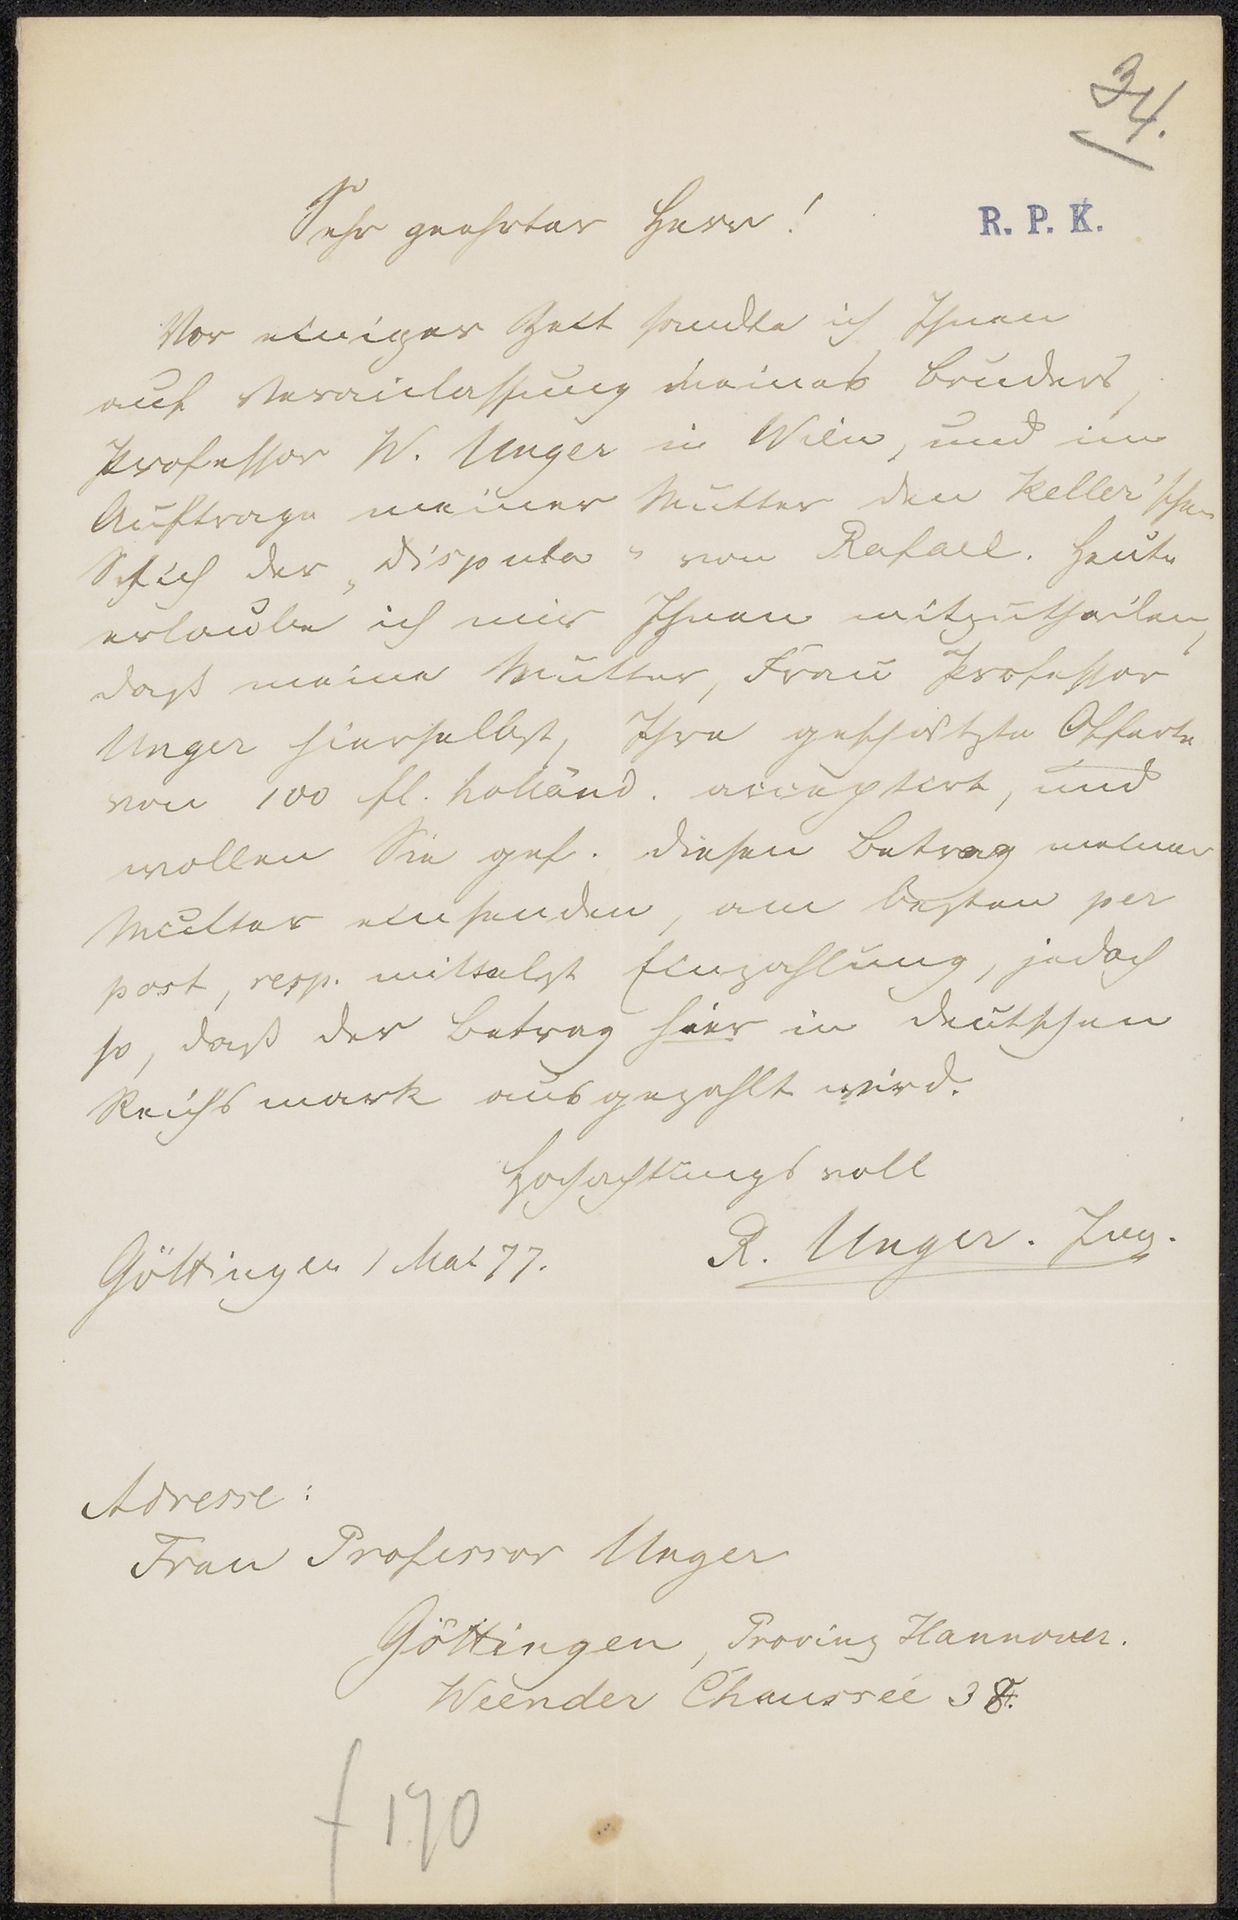 34.
R. P. K.
Sehr geehrter Herr!
Vor einiger Zeit sandte ich Ihnen
auf Veranlassung meines Bruders,
Professor W. Unger in Wien, und im
Auftrage meiner Mutter den Keller'schen
Stich der „Disputa" von Rafael. Heute
erlaube ich mir Ihnen mitzutheilen,
daß meine Mutter, Frau Professor
Unger hierselbst, Ihre geschätzte Offerte
von 100 fl. holländ. acceptirt, und
wollen Sie gef. diesen Betrag meiner
Mutter einsenden, am besten per
post, resp. mittelst Einzahlung, jedoch
so, daß der Betrag hier in deutschen
Reichsmark ausgezahlt wird.
Hochachtungsvoll
R. Unger. Ing.
Göttingen 1 Mai 77.
Adresse:
Frau Professor Unger
Göttingen, Provinz Hannover.
Weender Chaussée
f 170